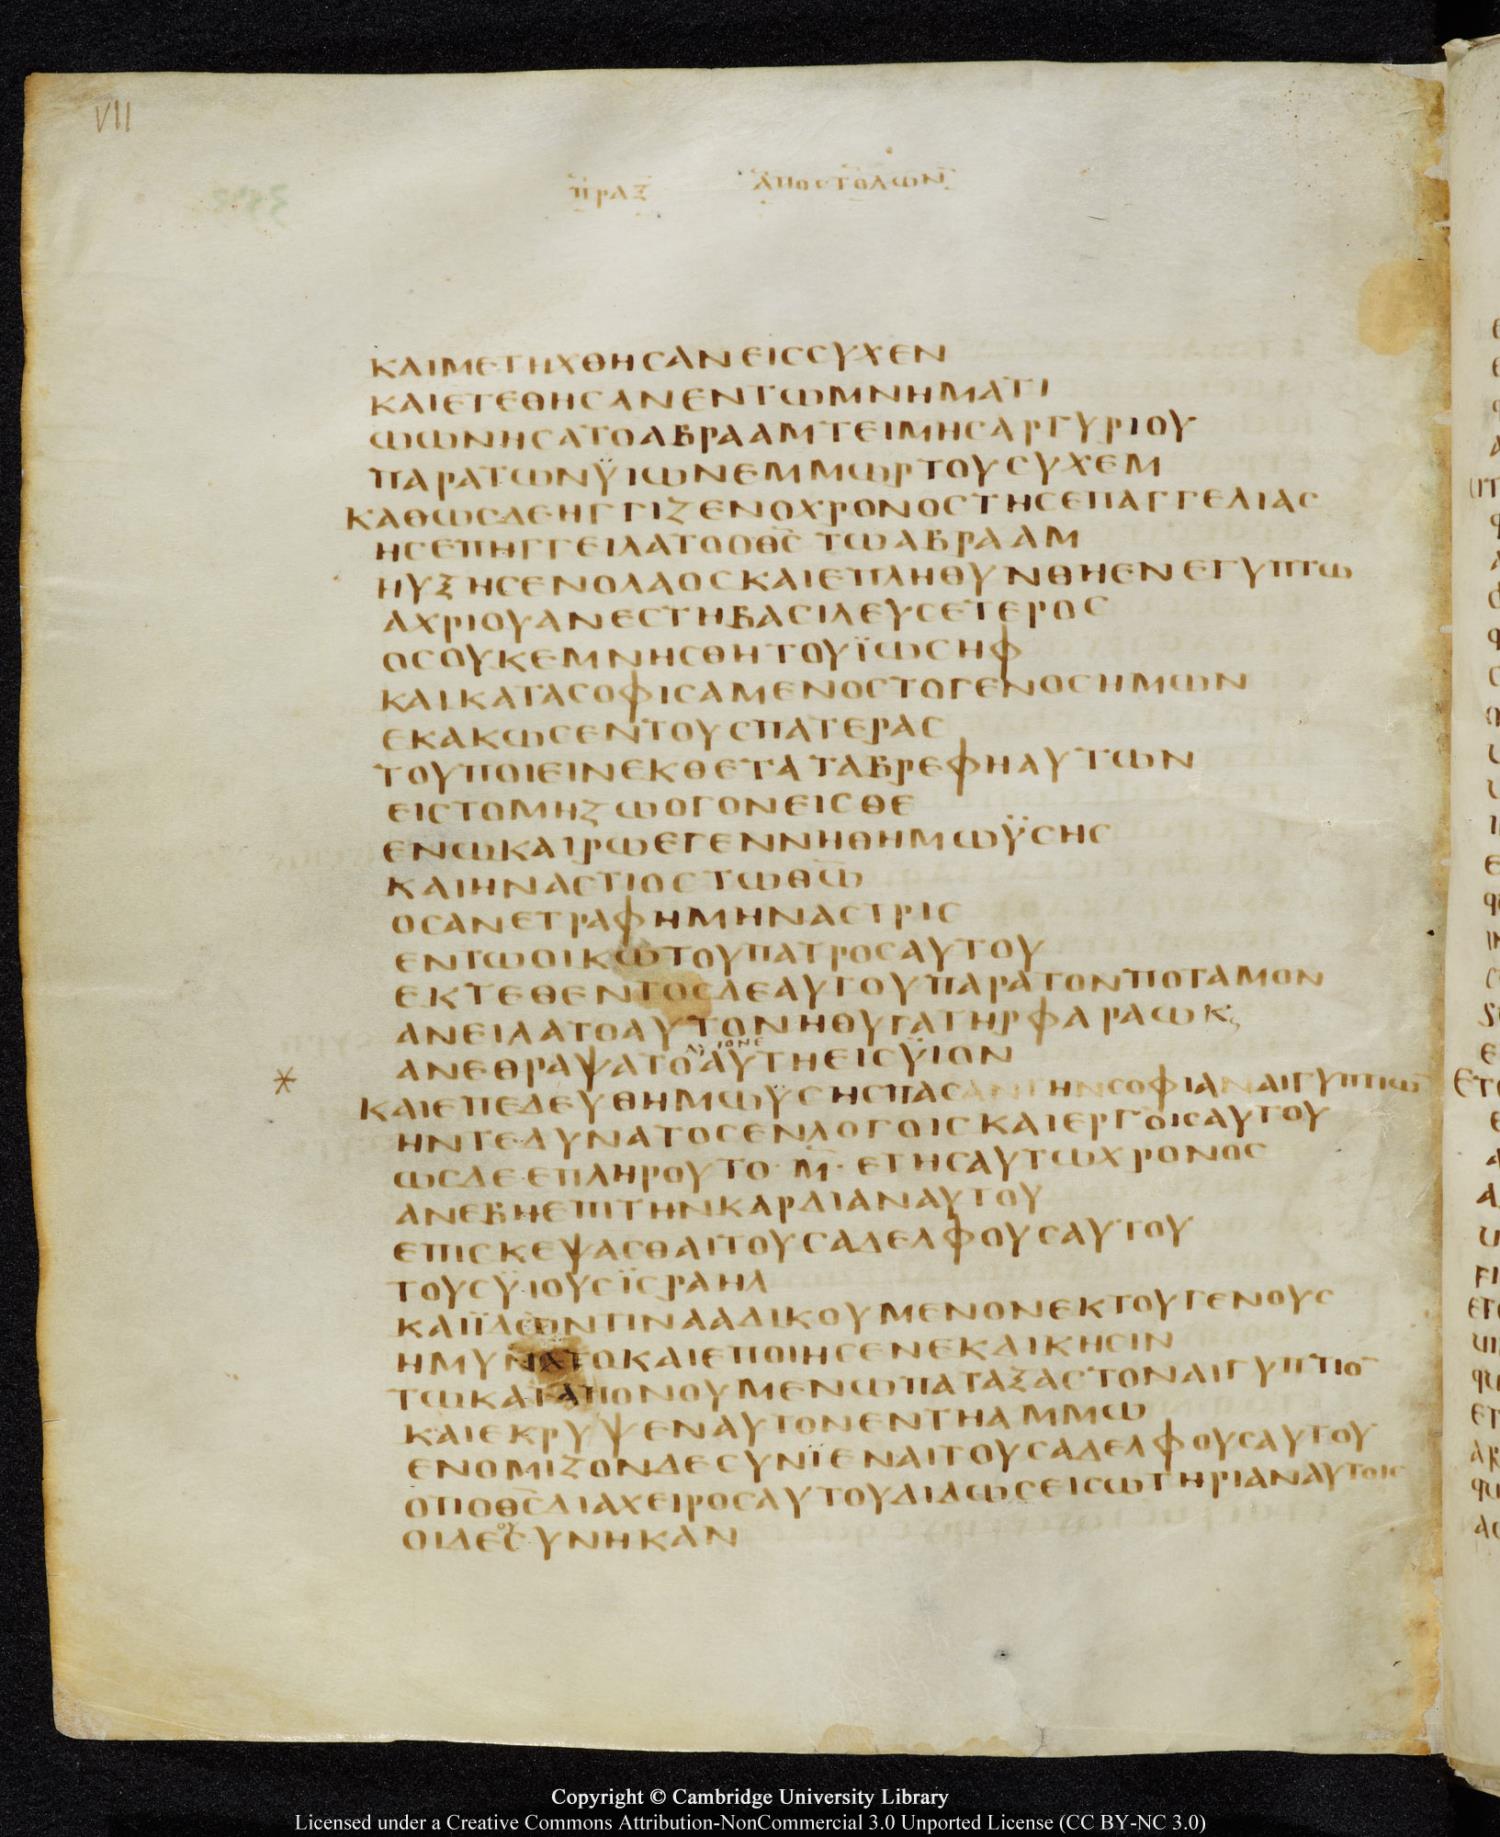 VII
ΠΡΑΞ ΑΠΟCΤΟΛΩΝ
ΚΑΙΜΕΤΗΧΘΗCΑΝΕΙCCΥΧΕΝ
ΚΑΙΕΤΕΘΗCΑΝΕΝΤΩΜΝΗΜΑΤΙ
ΩΩΝΗCΑΤΟΑΒΡΑΑΜΤΕΙΜΗCΑΡΓΥΡΙΟΥ
ΠΑΡΑΤΩΝΫΙΩΝΕΜΜΩΡΤΟΥCΥΧΕΜ
ΚΑΘΩCΔΕΗΓΓΙΖΕΝΟΧΡΟΝΟCΤΗCΕΠΑΓΓΕΛΙΑC
ΗCΕΠΗΓΓΕΙΛΑΤΟΟΘC̅ ΤΩΑΒΡΑΑΜ
ΗΥΞΗCΕΝΟΛΑΟCΚΑΙΕΠΛΗΘΥΝΘΗΕΝΕΓΥΠΤΩ
ΑΧΡΙΟΥΑΝΕCΤΗΒΑCΙΛΕΥCΕΤΕΡΟC
ΟCΟΥΚΕΜΝΗCΘΗΤΟΥΪΩCΗΦ
ΚΑΙΚΑΤΑCΟΦΙCΑΜΕΝΟCΤΟΓΕΝΟCΗΜΩΝ
ΕΚΑΚΩCΕΝΤΟΥCΠΑΤΕΡΑC
ΤΟΥΠΟΙΕΙΝΕΚΘΕΤΑΤΑΒΡΕΦΗΑΥΤΩΝ
ΕΙCΤΟΜΗΖΩΟΓΟΝΕΙCΘΕ
ΕΝΩΚΑΙΡΩΕΓΕΝΝΗΘΗΜΩΫCΗC
ΚΑΙΗΝΑCΤΙΟCΤΩΘΩ̅
ΟCΑΝΕΤΡΑΦΗΜΗΝΑCΤΡΙC
ΕΝΤΩΟΙΚΩΤΟΥΠΑΤΡΟCΑΥΤΟΥ
ΕΚΤΕΘΕΝΤΟCΔΕΑΥΤΟΥΠΑΡΑΤΟΝΠΟΤΑΜΟΝ
ΑΝΕΙΛΑΤΟΑΥΤΟΝΗΘΥΓΑΤΗΡΦΑΡΑΩΚ
ΑΝΕΘΡΑΨΑΤΟΑΥΤΗΕΙCΫΙΟΝ
ΚΑΙΕΠΕΔΕΥΘΗΜΩΫCΗCΠΑCΑΝΤΗΝCΟΦΙΑΝΑΙΓΥΠΤΙΩ̅
ΗΝΤΕΔΥΝΑΤΟCΕΝΛΟΓΟΙCΚΑΙΕΡΓΟΙCΑΥΤΟΥ
ΩCΔΕΕΠΛΗΡΟΥΤΟ·Μ̅·ΕΤΗCΑΥΤΩΧΡΟΝΟC
ΑΝΕΒΗΕΠΙΤΗΝΚΑΡΔΙΑΝΑΥΤΟΥ
ΕΠΙCΚΕΨΑCΘΑΙΤΟΥCΑΔΕΛΦΟΥCΑΥΤΟΥ
ΤΟΥCΫΙΟΥCΪCΡΑΗΛ
ΚΑΙΪΔΩΝΤΙΝΑΑΔΙΚΟΥΜΕΝΟΝΕΚΤΟΥΓΕΝΟΥC
ΗΜΥΝΑΤΟΚΑΙΕΠΟΙΗCΕΝΕΚΔΙΚΗCΙΝ
ΤΩΚΑΤΑΠΟΝΟΥΜΕΝΩΠΑΤΑΞΑCΤΟΝΑΙΓΥΠΤΙΟ̅
ΚΑΙΕΚΡΥΨΕΝΑΥΤΟΝΕΝΤΗΑΜΜΩ
ΕΝΟΜΙΖΟΝΔΕCΥΝΪΕΝΑΙΤΟΥCΑΔΕΛΦΟΥCΑΥΤΟΥ
ΟΤΙΟΘC̅ΔΙΑΧΕΙΡΟCΑΥΤΟΥΔΙΔΩCΕΙCΩΤΗΡΙΑΝΑΥΤΟΙC
ΟΙΔΕΟΥCΥΝΗΚΑΝ
Copyright © Cambridge University Library
Licensed under a Creative Commons Attribution-NonCommercial 3.0 Unported License (CC BY-NC 3.0)